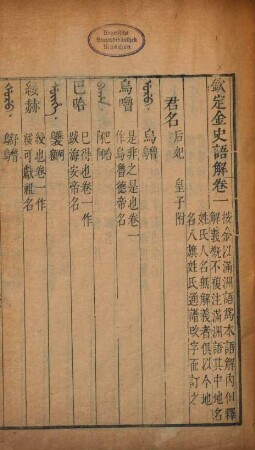 Bayerische
Staatsbibliothek
München
欽定金史語解卷一
按金以滿洲語爲本語解內但釋
解義概不複注滿洲語其中地名
姓氏人名無解義者俱以今地
名八旗姓氏通譜改字而訂之
君名 后妃 皇子附
ᡠᡵᡠ 烏嚕
烏嚕 是非之是也卷一
作烏魯德帝名
ᠪᠠᡥᠠ
巴哈 已得也卷一作
跋海安帝名
ᠰᡠᡳᡥᡝ
綏赫 穗也卷一作
綏可獻祖名